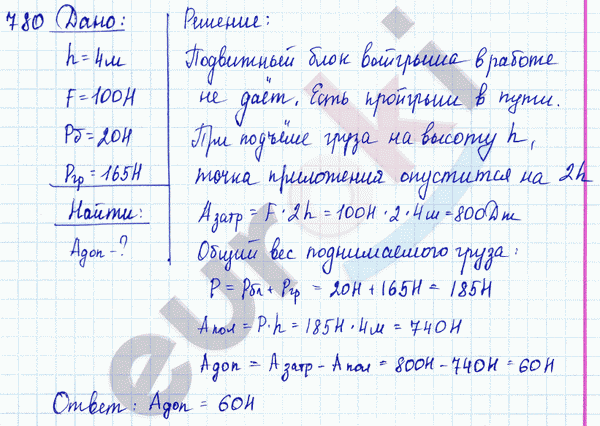 780 Дано:
h = 4м
F = 100Н
Рб = 20Н
Ргр = 165Н
Найти:
Адоп - ?
Решение:
Подвижный блок выйгрыша в работе
не даёт. Есть пройгрыш в пути.
При подъёме груза на высоту h,
точка приложения опустится на 2h
Азатр = F · 2h = 100Н · 2 · 4м = 800Дж
Общий вес поднимаемого груза:
Р = Рбл + Ргр = 20Н + 165Н = 185Н
Апол = Р · h = 185Н · 4м = 740Н
Адоп = Азатр - Апол = 800Н - 740Н = 60Н
Ответ: Адоп = 60Н
euroki